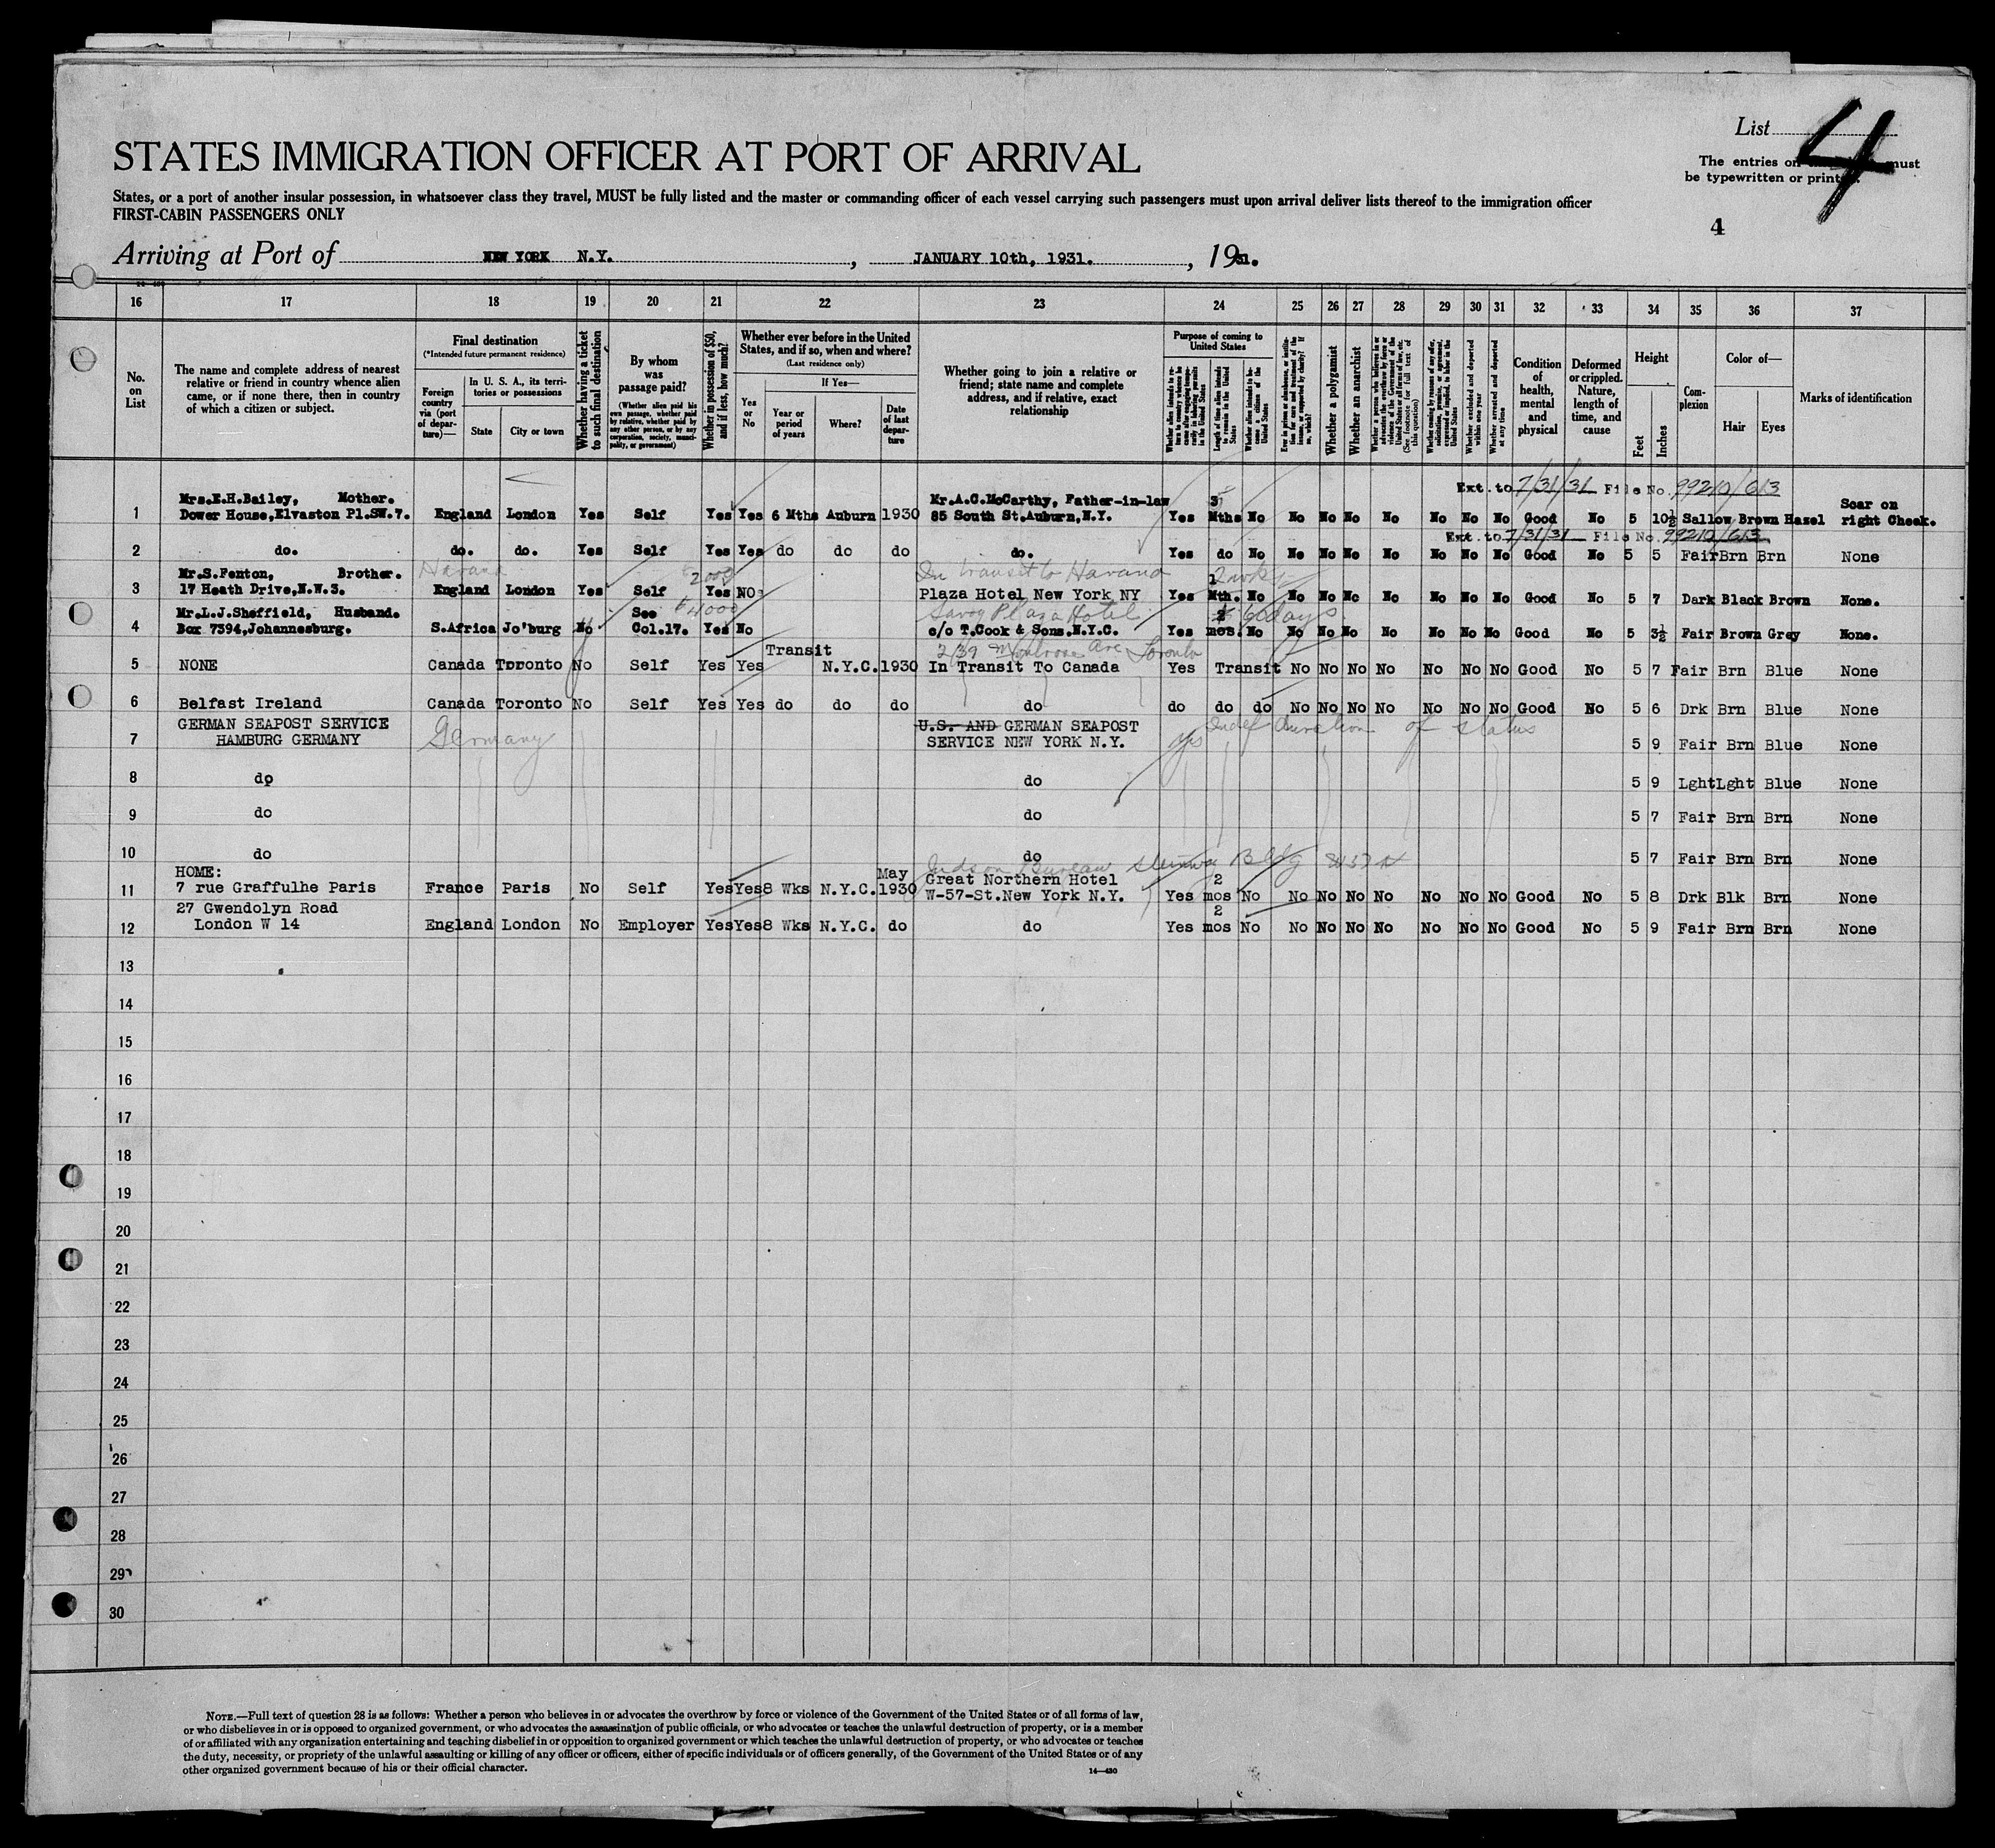 List 4
STATES IMMIGRATION OFFICER AT PORT OF ARRIVAL
The entries on must
be typewritten or printed.
States, or a port of another insular possession, in whatsoever class they travel, MUST be fully listed and the master or commanding officer of each vessel carrying such passengers must upon arrival deliver lists thereof to the immigration officer
FIRST-CABIN PASSENGERS ONLY
4
Arriving at Port of NEW YORK N.Y. , JANUARY 10th, 1931. , 1931.
16 17 18 19 20 21 22 23 24 25 26 27 28 29 30 31 32 33 34 35 36 37
No. on List
The name and complete address of nearest relative or friend in country whence alien came, or if none there, then in country of which a citizen or subject.
Final destination
(*Intended future permanent residence)
Foreign country via (port of departure)—
In U. S. A., its territories or possessions
State City or town
Whether having a ticket to such final destination
By whom was passage paid?
(Whether alien paid his own passage, whether paid by relative, whether paid by any other person, or by any corporation, society, municipality, or government)
Whether in possession of $50, and if less, how much?
Whether ever before in the United States, and if so, when and where?
(Last residence only)
Yes or No
If Yes—
Year or period of years
Where?
Date of last departure
Whether going to join a relative or friend; state name and complete address, and if relative, exact relationship
Purpose of coming to United States
Length of time alien intends to remain in the United States
Whether alien intends to become a citizen of the United States
Whether a polygamist
Whether an anarchist
Whether excluded and deported within one year
Whether arrested and deported at any time
Condition of health, mental and physical
Deformed or crippled. Nature, length of time, and cause
Height
Feet Inches
Complexion
Color of—
Hair Eyes
Marks of identification
Ext. to 7/31/31 File No. 99210/613
1 Mrs.E.H.Bailey, Mother. Dower House,Elvaston Pl.SW.7. England London Yes Self Yes Yes 6 Mths Auburn 1930 Mr.A.C.McCarthy, Father-in-law 85 South St.Auburn,N.Y. Yes 3 Mths No No No No No No No No Good No 5 10½ Sallow Brown Hazel Scar on right Cheek.
Ext. to 7/31/31 File No. 99210/613
2 do. do. do. Yes Self Yes Yes do do do do. Yes do No No No No No No No No Good No 5 5 Fair Brn Brn None
3 Mr.S.Fenton, Brother. 17 Heath Drive,N.W.3. Havana England London Yes Self 2000 Yes NO In transit to Havana Plaza Hotel New York NY Yes 1 Mth. No No No No No No No No Good No 5 7 Dark Black Brown None.
4 Mr.L.J.Sheffield, Husband. Box 7394,Johannesburg. S.Africa Jo'burg No See Col.17. 4000 Yes No Savoy Plaza Hotel c/o T.Cook & Sons.N.Y.C. Yes mos. 60 days No No No No No No No No Good No 5 3½ Fair Brown Grey None.
5 NONE Canada Toronto No Self Yes Yes Transit N.Y.C. 1930 239 Montrose Ave Toronto In Transit To Canada Yes Transit No No No No No No No Good No 5 7 Fair Brn Blue None
6 Belfast Ireland Canada Toronto No Self Yes Yes do do do do do do do No No No No No No No Good No 5 6 Drk Brn Blue None
7 GERMAN SEAPOST SERVICE HAMBURG GERMANY Germany U.S. AND GERMAN SEAPOST SERVICE NEW YORK N.Y. yes Indef duration of status 5 9 Fair Brn Blue None
8 do do 5 9 Lght Lght Blue None
9 do do 5 7 Fair Brn Brn None
10 do do 5 7 Fair Brn Brn None
11 HOME: 7 rue Graffulhe Paris France Paris No Self Yes Yes 8 Wks N.Y.C. May 1930 Judson Bureau Steinway Bldg Great Northern Hotel W-57-St.New York N.Y. Yes 2 mos No No No No No No No No Good No 5 8 Drk Blk Brn None
12 27 Gwendolyn Road London W 14 England London No Employer Yes Yes 8 Wks N.Y.C. do do Yes 2 mos No No No No No No No No Good No 5 9 Fair Brn Brn None
13
14
15
16
17
18
19
20
21
22
23
24
25
26
27
28
29
30
NOTE.—Full text of question 28 is as follows: Whether a person who believes in or advocates the overthrow by force or violence of the Government of the United States or of all forms of law,
or who disbelieves in or is opposed to organized government, or who advocates the assassination of public officials, or who advocates or teaches the unlawful destruction of property, or is a member
of or affiliated with any organization entertaining and teaching disbelief in or opposition to organized government or which teaches the unlawful destruction of property, or who advocates or teaches
the duty, necessity, or propriety of the unlawful assaulting or killing of any officer or officers, either of specific individuals or of officers generally, of the Government of the United States or of any
other organized government because of his or their official character.
14—430